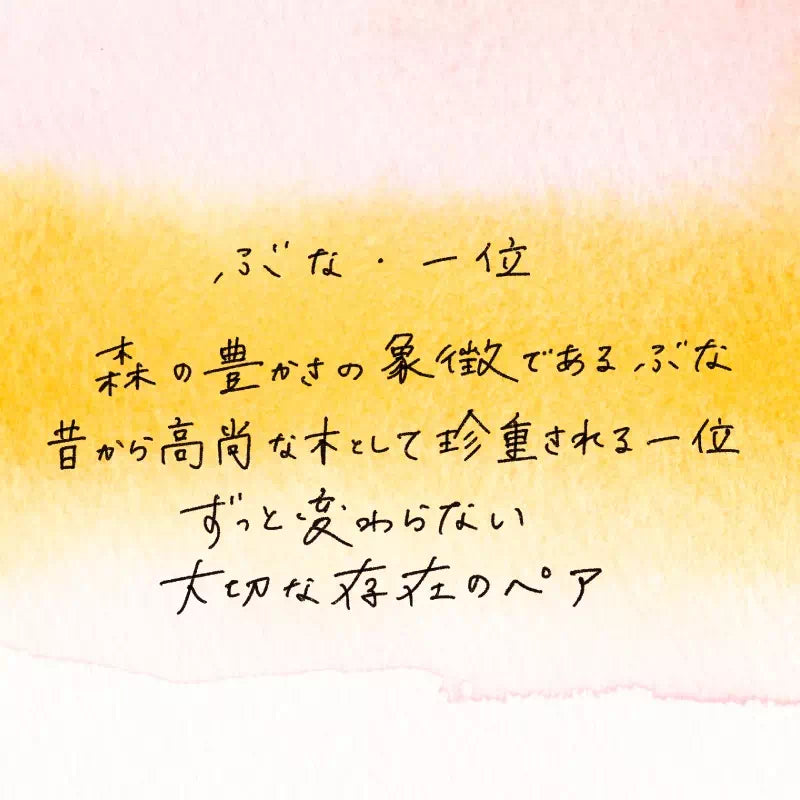 ぶな・一位
森の豊かさの象徴であるぶな
昔から高尚な木として珍重される一位
ずっと変わらない
大切な存在のペア